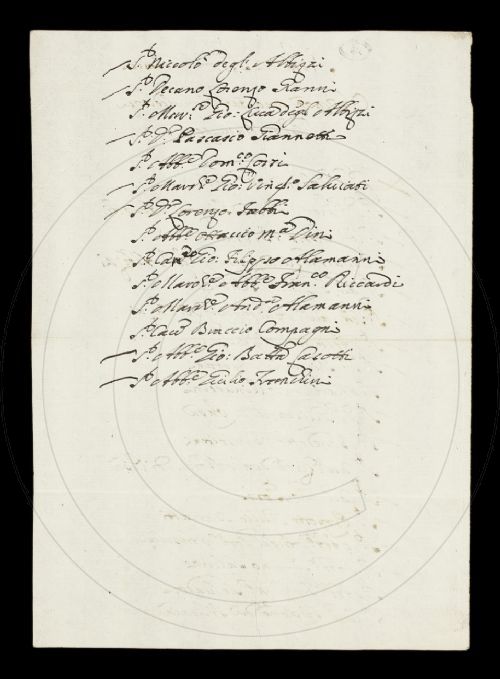 Sr. Niccolò degl: Albizi
Sr. Decano Lorenzo Gianni
Sr. Marche. Gio: Luca degl Albizi
Sr. Dr. Pascasio Giannetti
Sr. Abbe. Domco. Corri
Sr. Marche. Gio: Vinco. Salviati
Sr. Dr. Lorenzo Fabbri
Sr. Abbe. Ottavio Ma. Pini
Sr. Cavre. Gio: Filippo Alamanni
Sr. Marche. Abbe. Franco. Riccardi
Sr. Marche. Andra. Alamanni
Sr. Cavre. Braccio Compagni
Sr. Abbe. Gio: Batta. Casotti
Sr. Abbe. Giulio Frondini